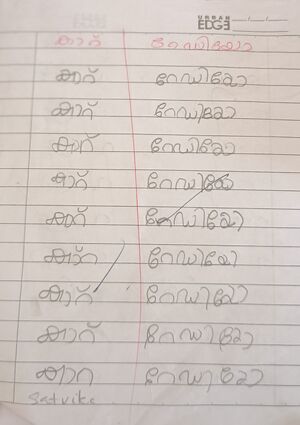 URBAN
EDGE
കാറ് റേഡിയോ
കാറ് റേഡിയോ
കാറ് റേഡിയോ
കാറ് റേഡിയോ
കാറ് റേഡിയോ
കാറ് റേഡിയോ
കാറ് റേഡിയോ
കാറ് റേഡിയോ
കാറ് റേഡിയോ
കാറ റേഡിയോ
Satvika